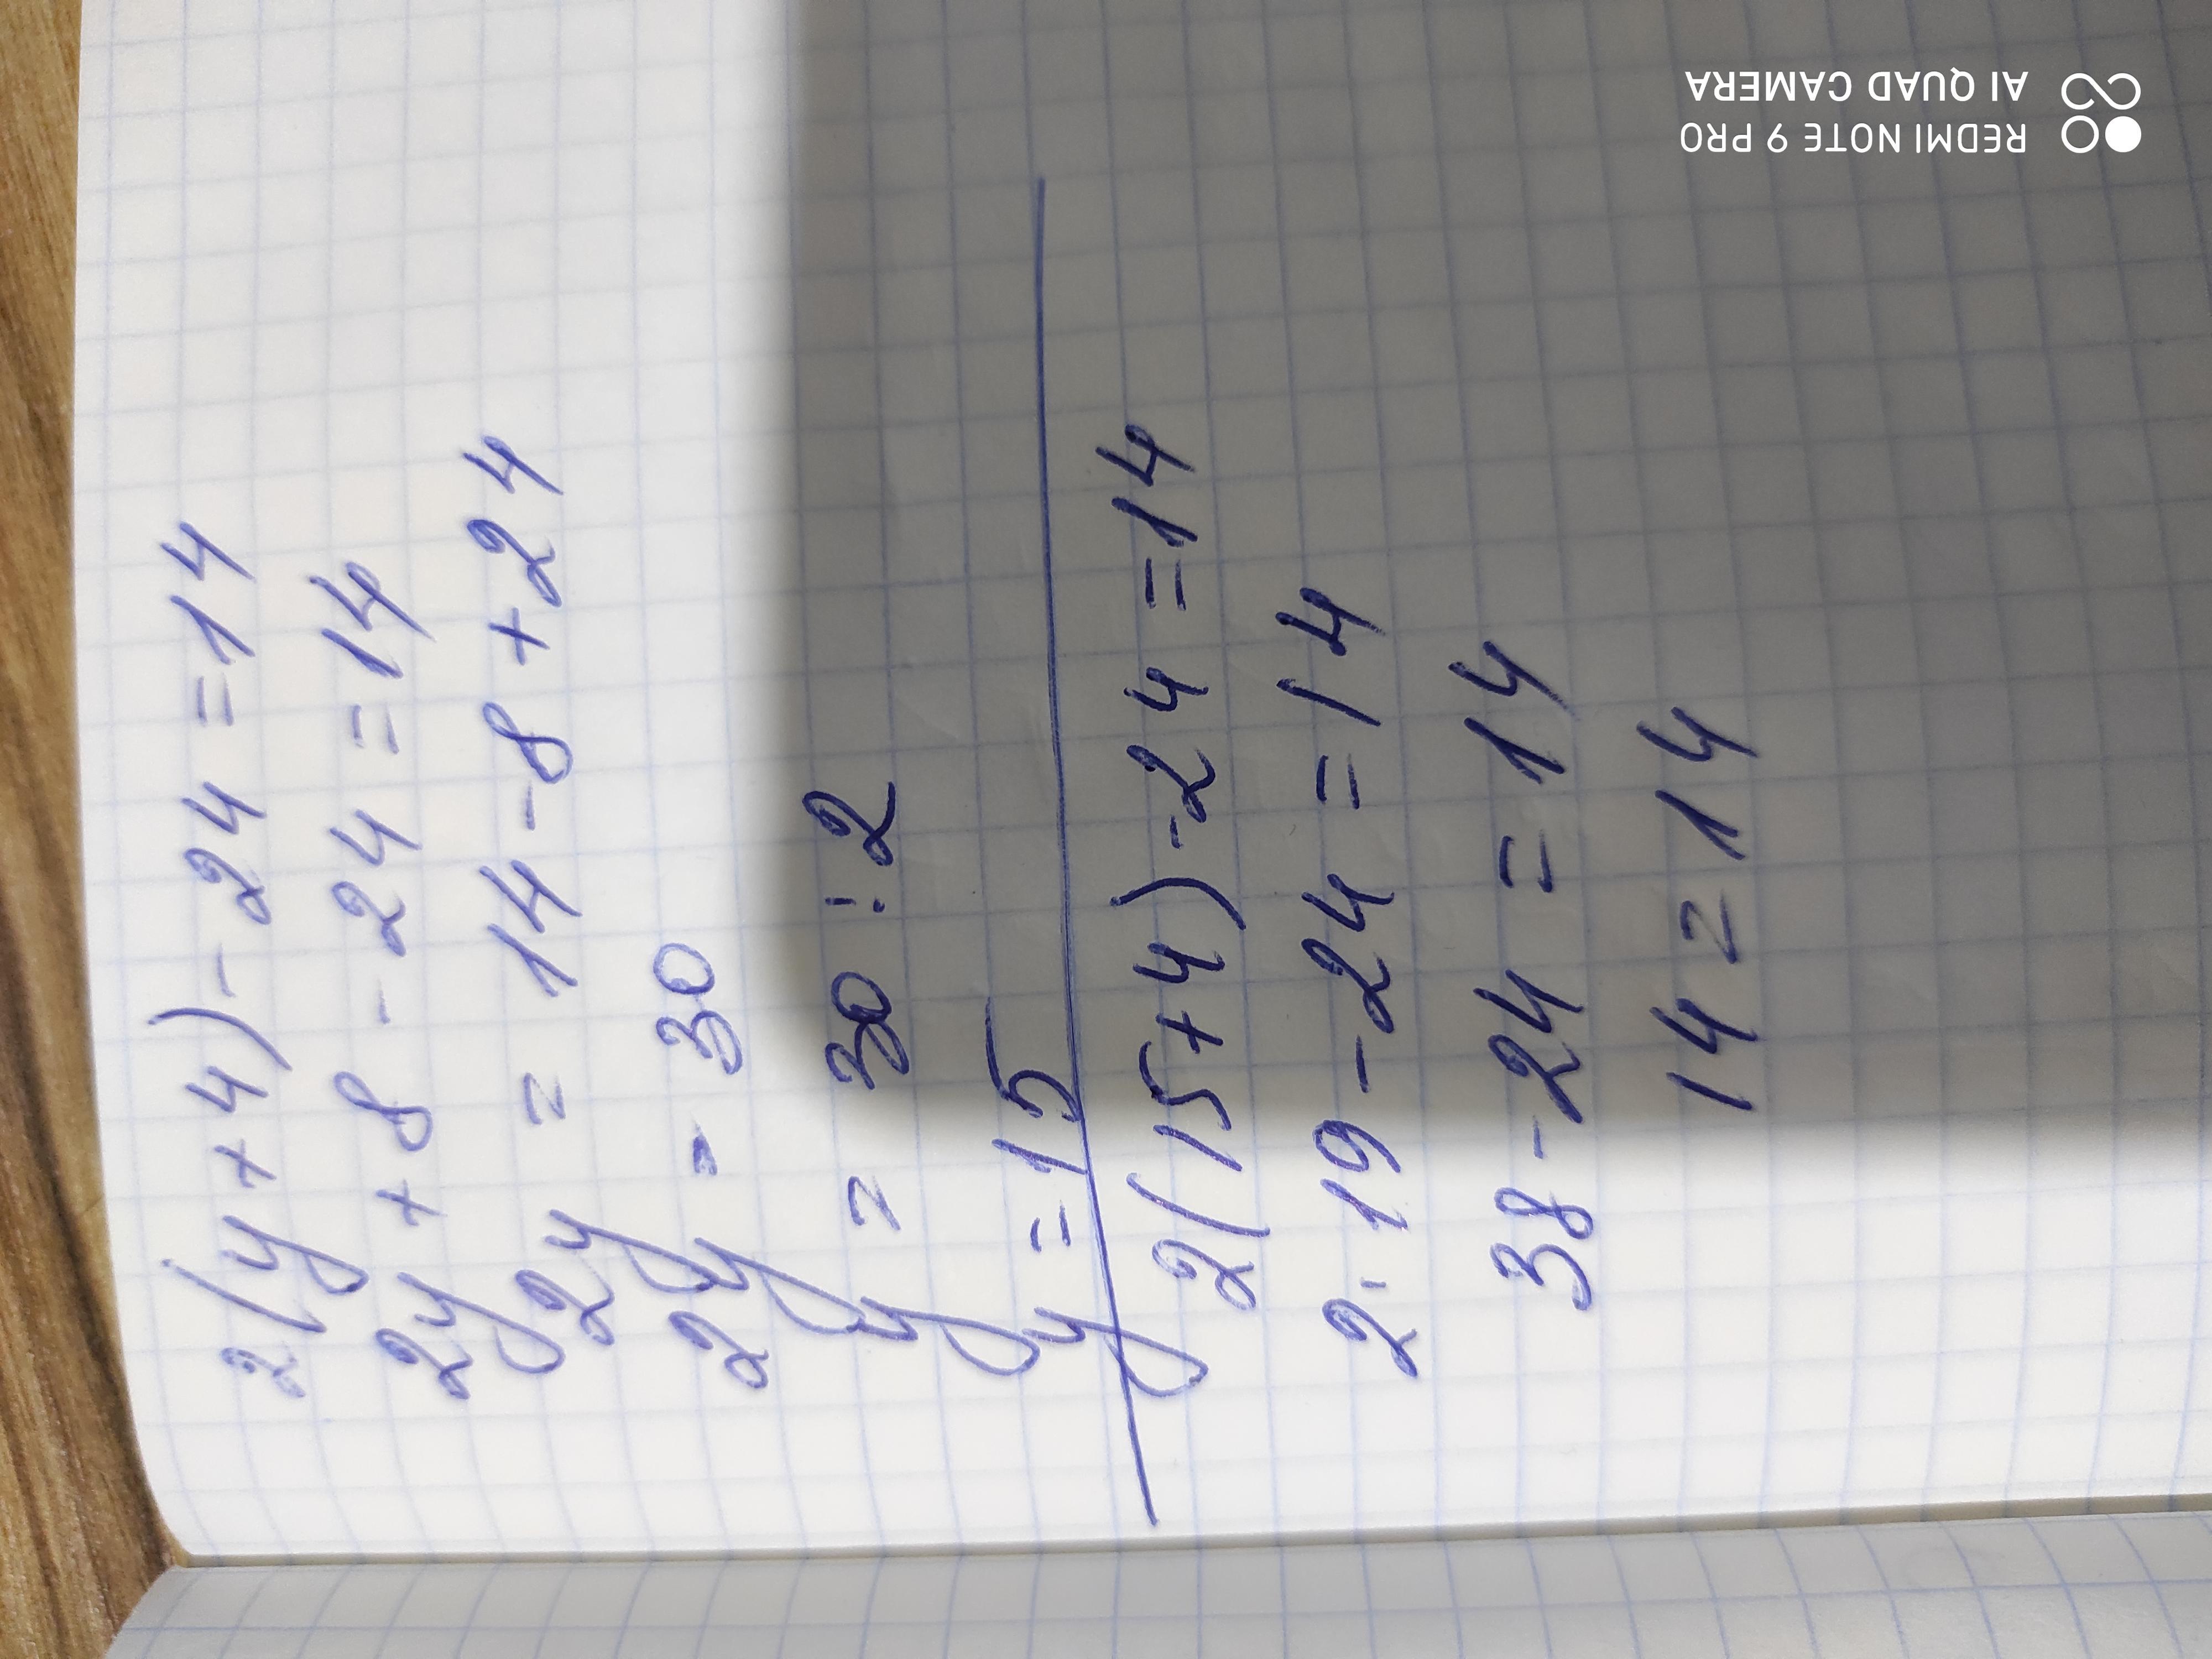 2(y+4)-24=14
2y+8-24=14
2y=14-8+24
2y=30
y=30:2
y=15
2(15+4)-24=14
2·19-24=14
38-24=14
14=14
REDMI NOTE 9 PRO
AI QUAD CAMERA